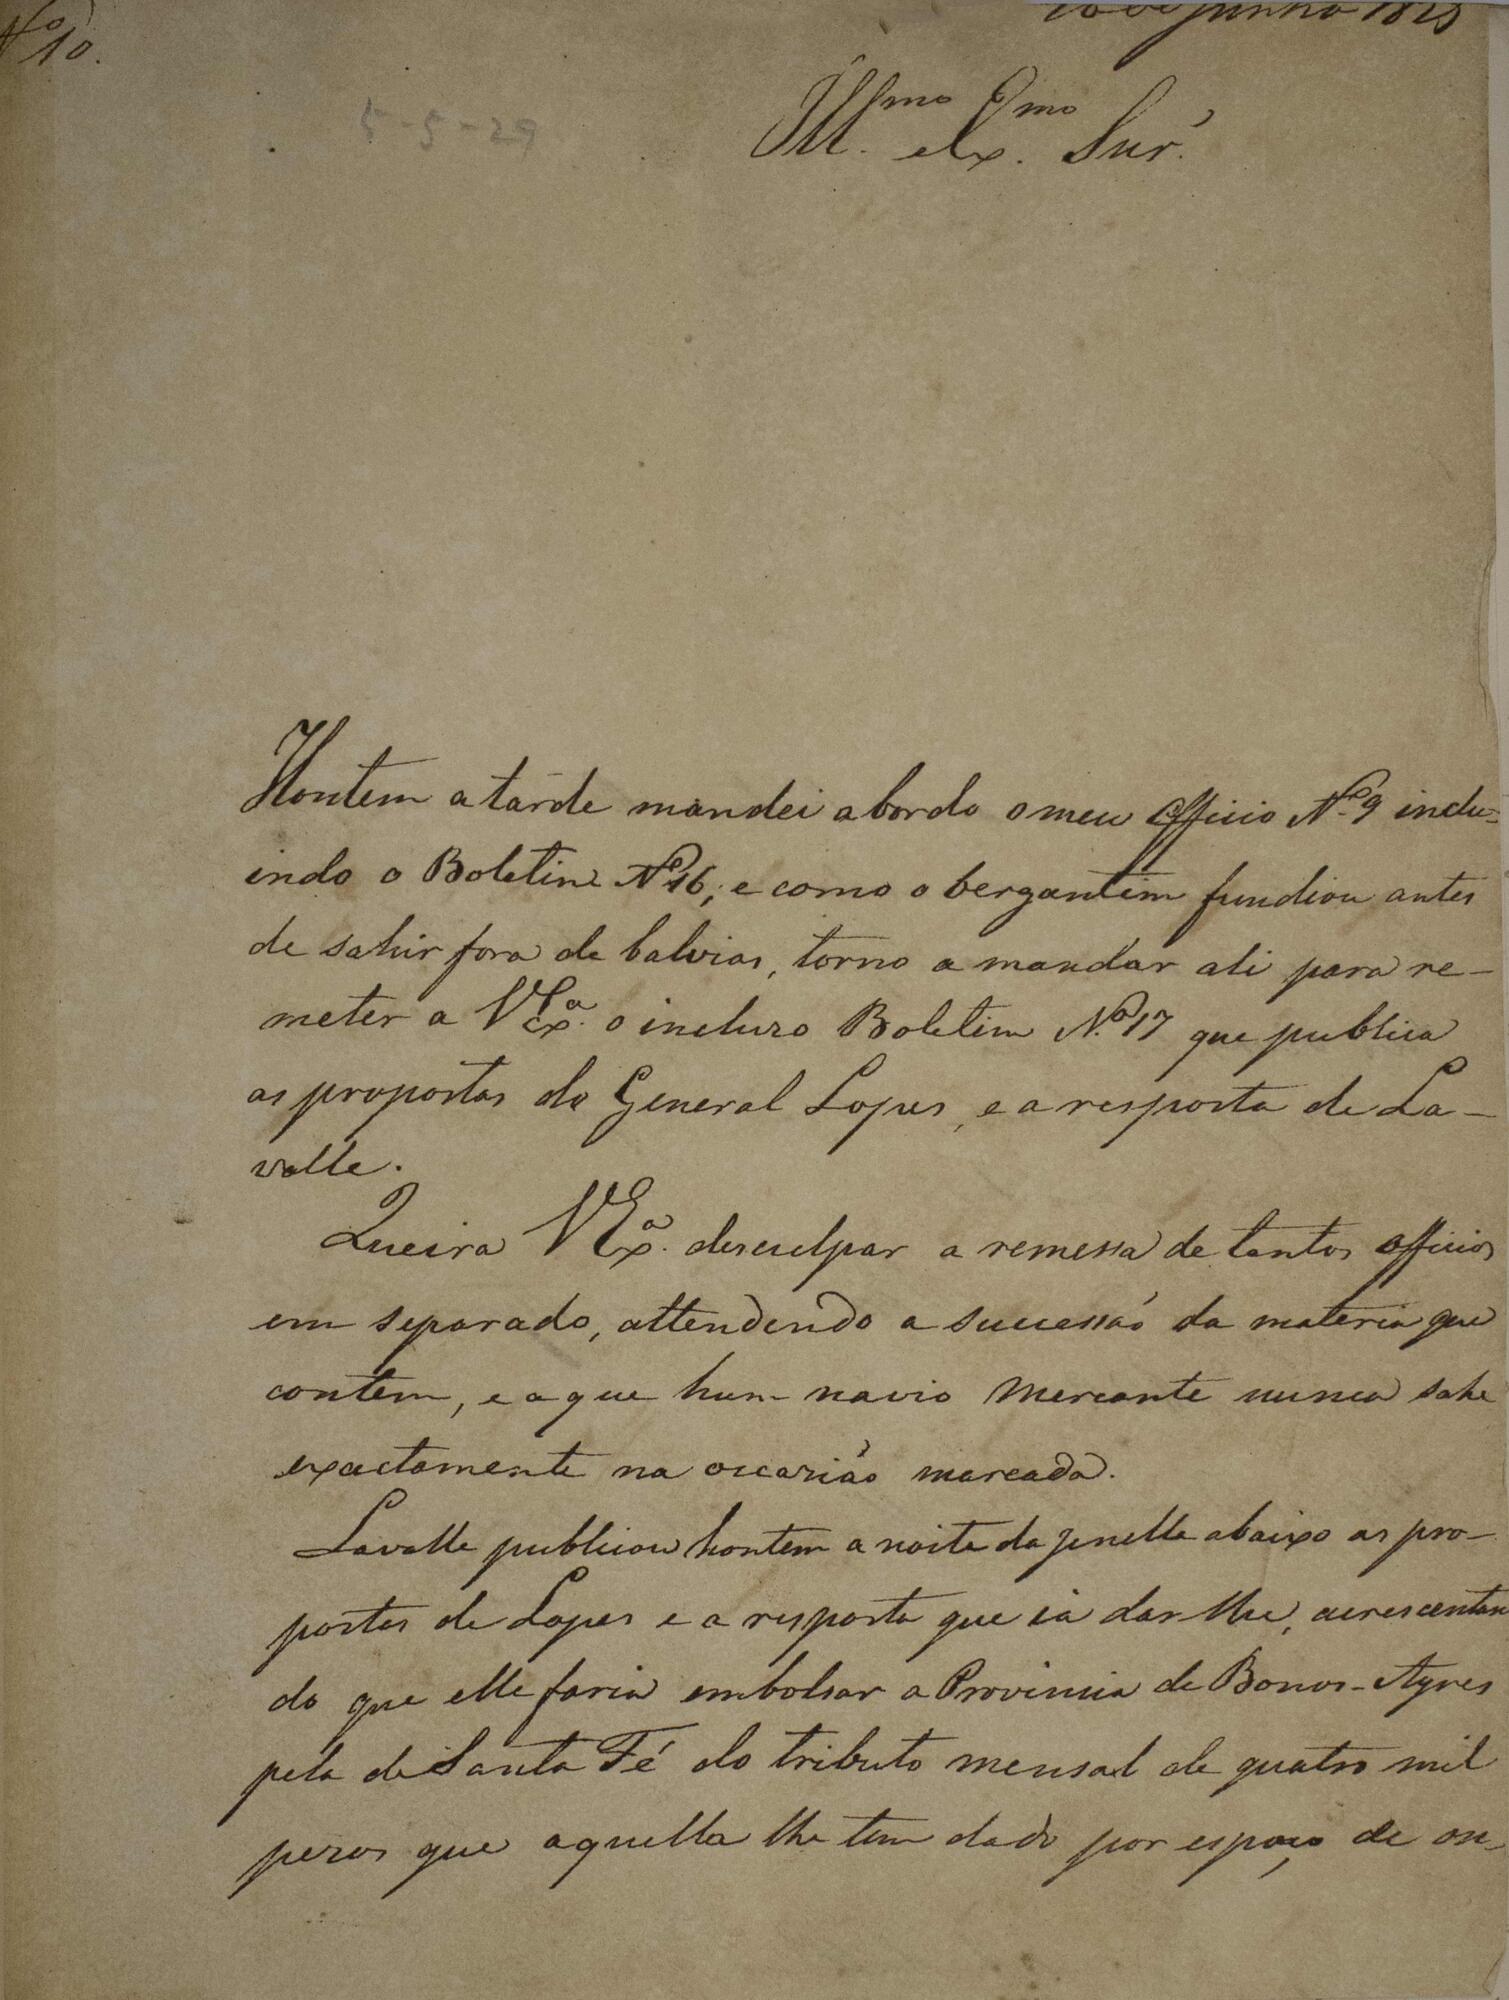 Nº 10.
de Junho 18
5-5-29
Illmo Exmo Snr.
Hontem a tarde mandei a bordo o meu Officio Nº 9 inclu-
indo o Boletim Nº 16, e como o bergantim fundiou antes
de sahir fora de balvias, torno a mandar ali para re-
meter a V Exª. o incluzo Boletim Nº 17 que publica
as propostas do General Lopes, e a resposta de La-
valle.
Queira V Exª. desculpar a remessa de tantos officios
em separado, attendendo a successão da materia que
contem, e a que hum navio mercante nunca sahe
exactamente na occazião marcada.
Lavalle publicou hontem a noite da jenella abaixo as pro-
postas de Lopes e a resposta que ia dar-lhe, acrescentan
do que elle faria embolsar a Provincia de Bonos-Ayres
pela de Santa Fé do tributo mensal de quatro mil
pezos que aquella lhe tem dado por espaço de on-